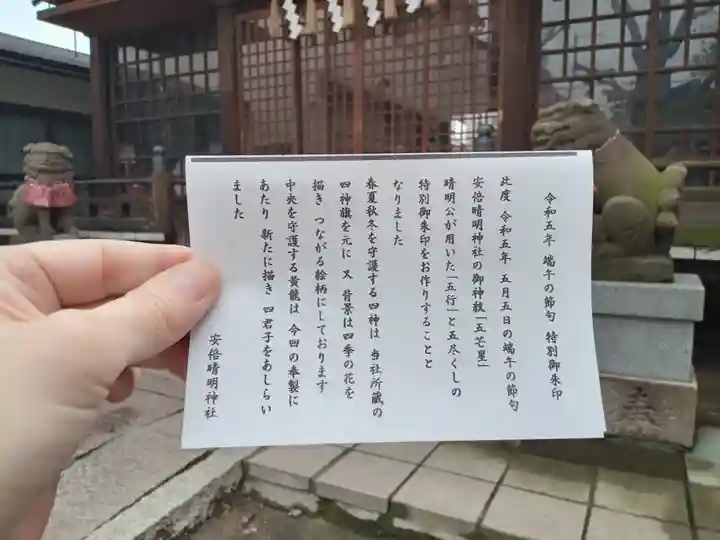 令和五年 端午の節句 特別御朱印
此度 令和五年 五月五日の端午の節句
安倍晴明神社の御神紋「五芒星」
晴明公が用いた「五行」と五尽くしの
特別御朱印をお作りすることと
なりました
春夏秋冬を守護する四神は 当社所蔵の
四神旗を元に 又 背景は四季の花を
描き つながる絵柄にしております
中央を守護する黄龍は 今回の奉製に
あたり 新たに描き 四君子をあしらい
ました
安倍晴明神社